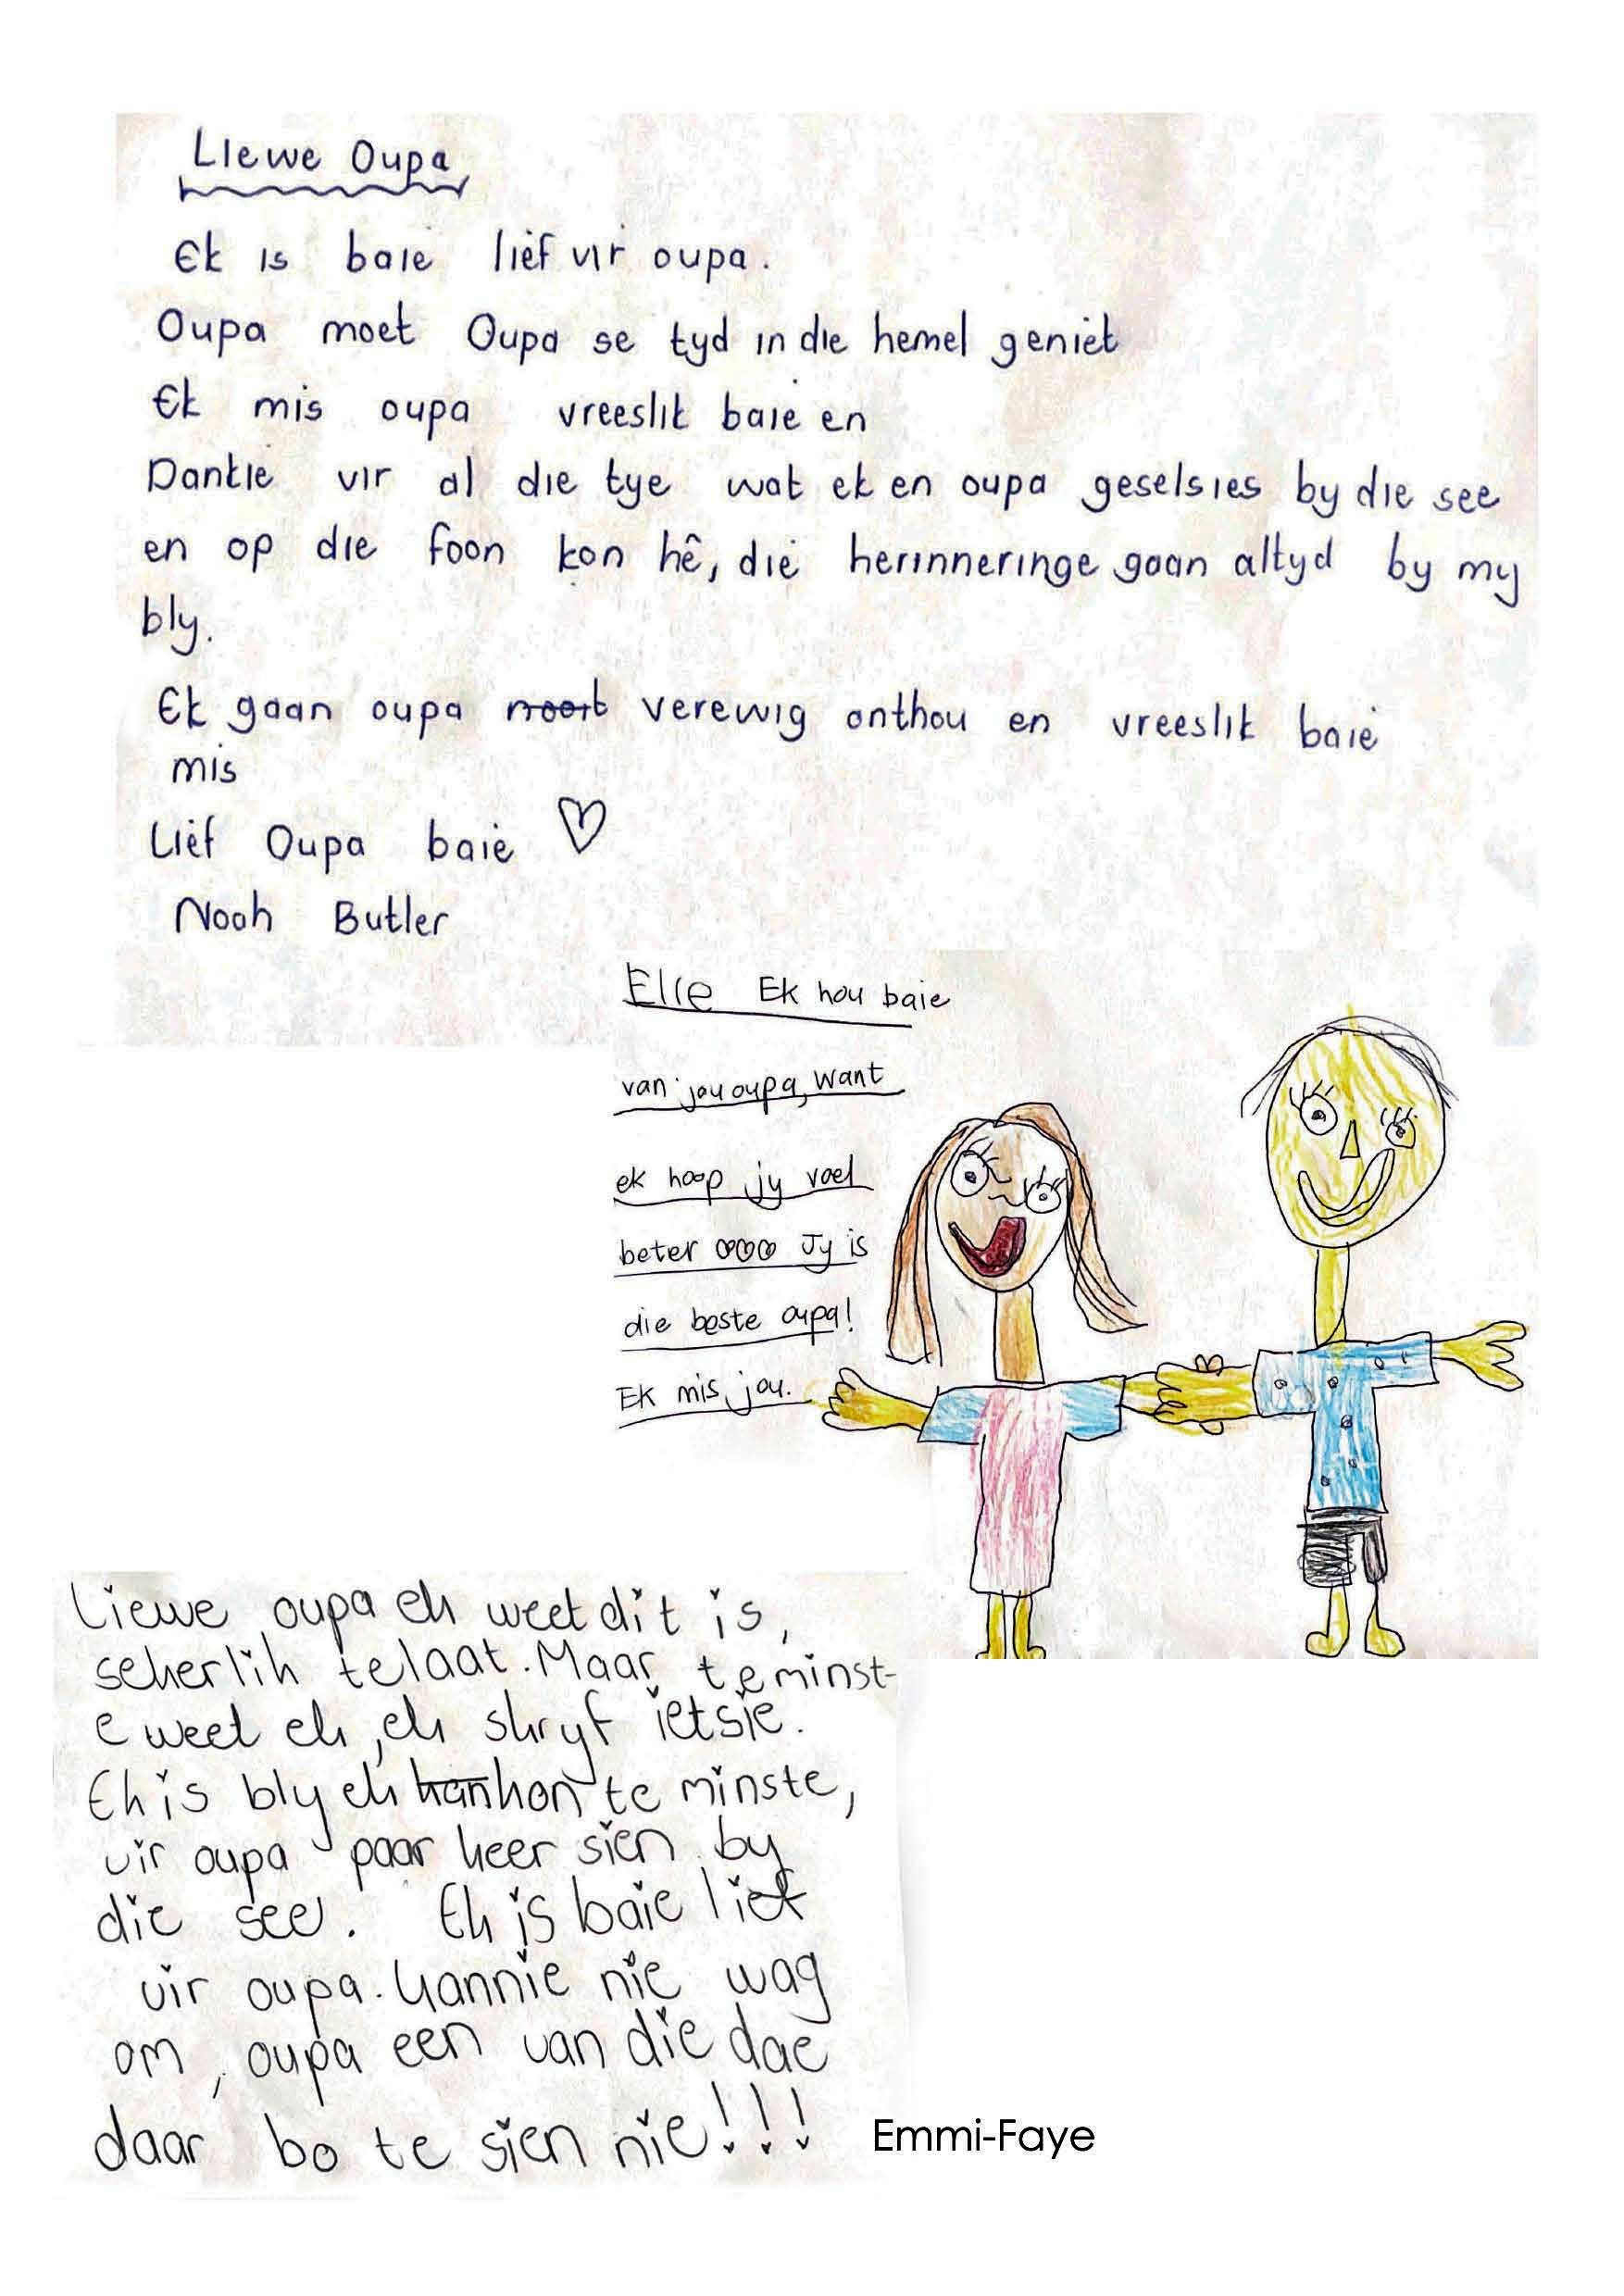 Liewe Oupa
Ek is baie lief vir oupa.
Oupa moet Oupa se tyd in die hemel geniet
Ek mis oupa vreeslik baie en
Dankie vir al die tye wat ek en oupa geselsies by die see
en op die foon kon hê, die herinneringe gaan altyd by my
bly.
Ek gaan oupa nooit verewig onthou en vreeslik baie
mis
Lief Oupa baie ♡
Noah Butler
Elle Ek hou baie
van jou oupa, want
ek hoop jy voel
beter ♡♡♡ Jy is
die beste oupa!
Ek mis jou.
Liewe oupa ek weet dit is,
sekerlik te laat. Maar teminst-
e weet ek, ek skryf ietsie.
Ek is bly ek kan kon te minste,
vir oupa paar keer sien by
die see. Ek is baie lief
vir oupa. Kannie nie wag
om, oupa een van die dae
daar bo te sien nie!!!
Emmi-Faye